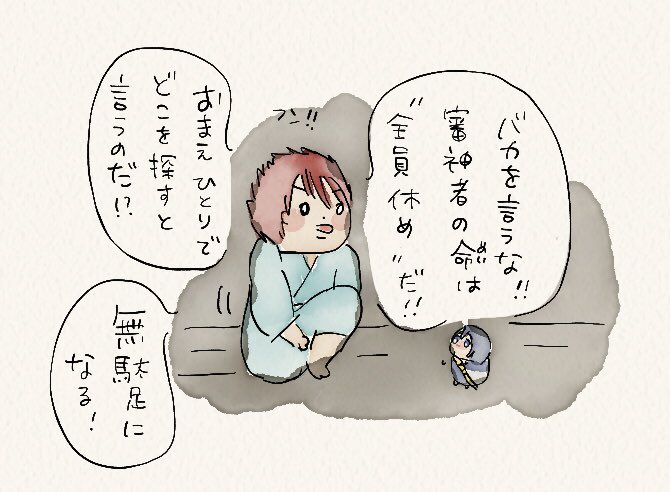 バカを言うな!!
審神者の命は
"全員休め"だ!!
めい
フン!!
おまえひとりで
どこを探すと
言うのだ!?
無駄足に
なる!